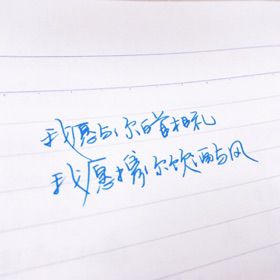 我愿与你白首相礼
我愿携你饮酒与风